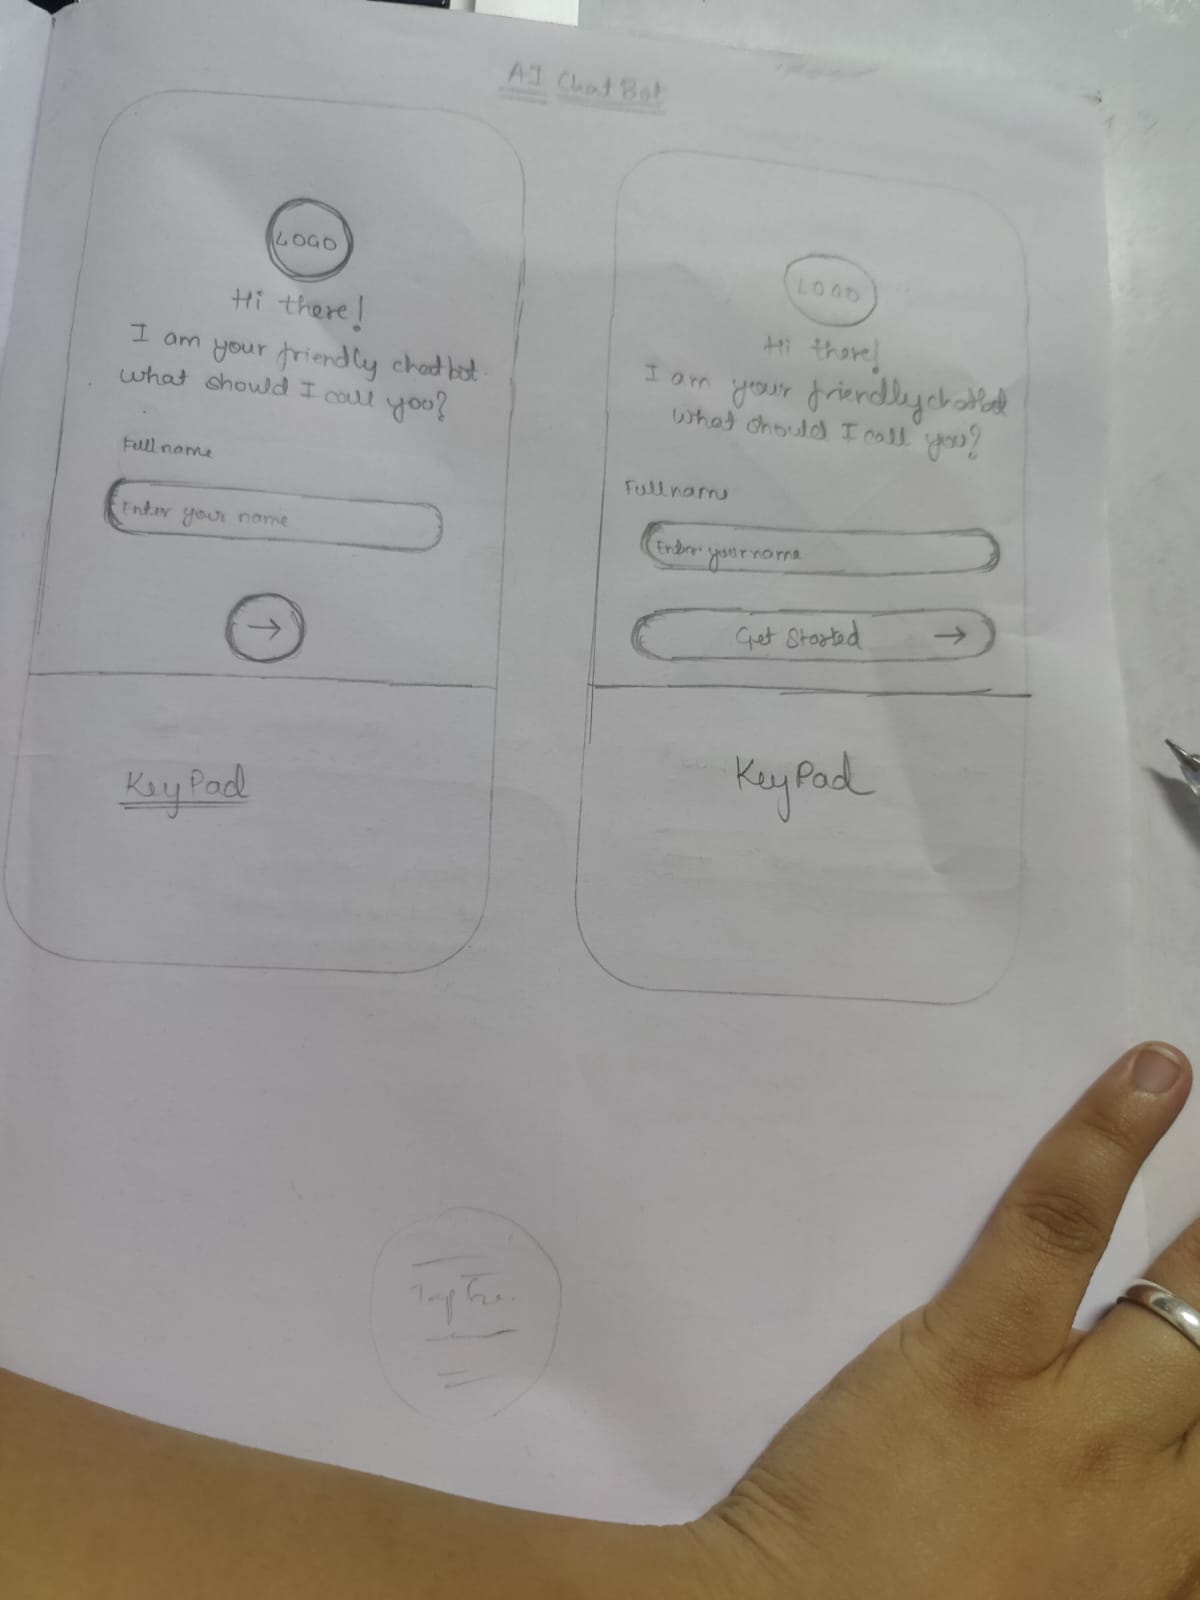 AI Chat Bot
LOGO
Hi there!
I am your friendly chatbot.
what should I call you?
Full name
Enter your name
→
KeyPad
LOGO
Hi there!
I am your friendly chatbot
what should I call you?
Full name
Enter your name
Get Started →
KeyPad